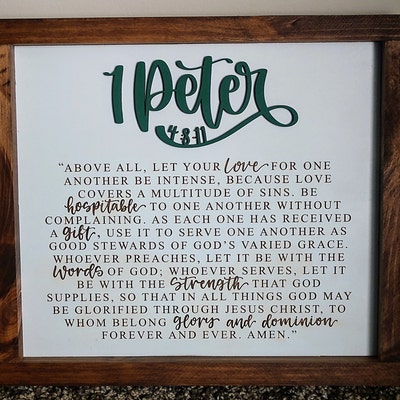 1 Peter
4:8-11
"ABOVE ALL, LET YOUR love FOR ONE
ANOTHER BE INTENSE, BECAUSE LOVE
COVERS A MULTITUDE OF SINS. BE
hospitable TO ONE ANOTHER WITHOUT
COMPLAINING. AS EACH ONE HAS RECEIVED
A gift, USE IT TO SERVE ONE ANOTHER AS
GOOD STEWARDS OF GOD'S VARIED GRACE.
WHOEVER PREACHES, LET IT BE WITH THE
words OF GOD; WHOEVER SERVES, LET IT
BE WITH THE strength THAT GOD
SUPPLIES, SO THAT IN ALL THINGS GOD MAY
BE GLORIFIED THROUGH JESUS CHRIST, TO
WHOM BELONG glory and dominion
FOREVER AND EVER. AMEN."